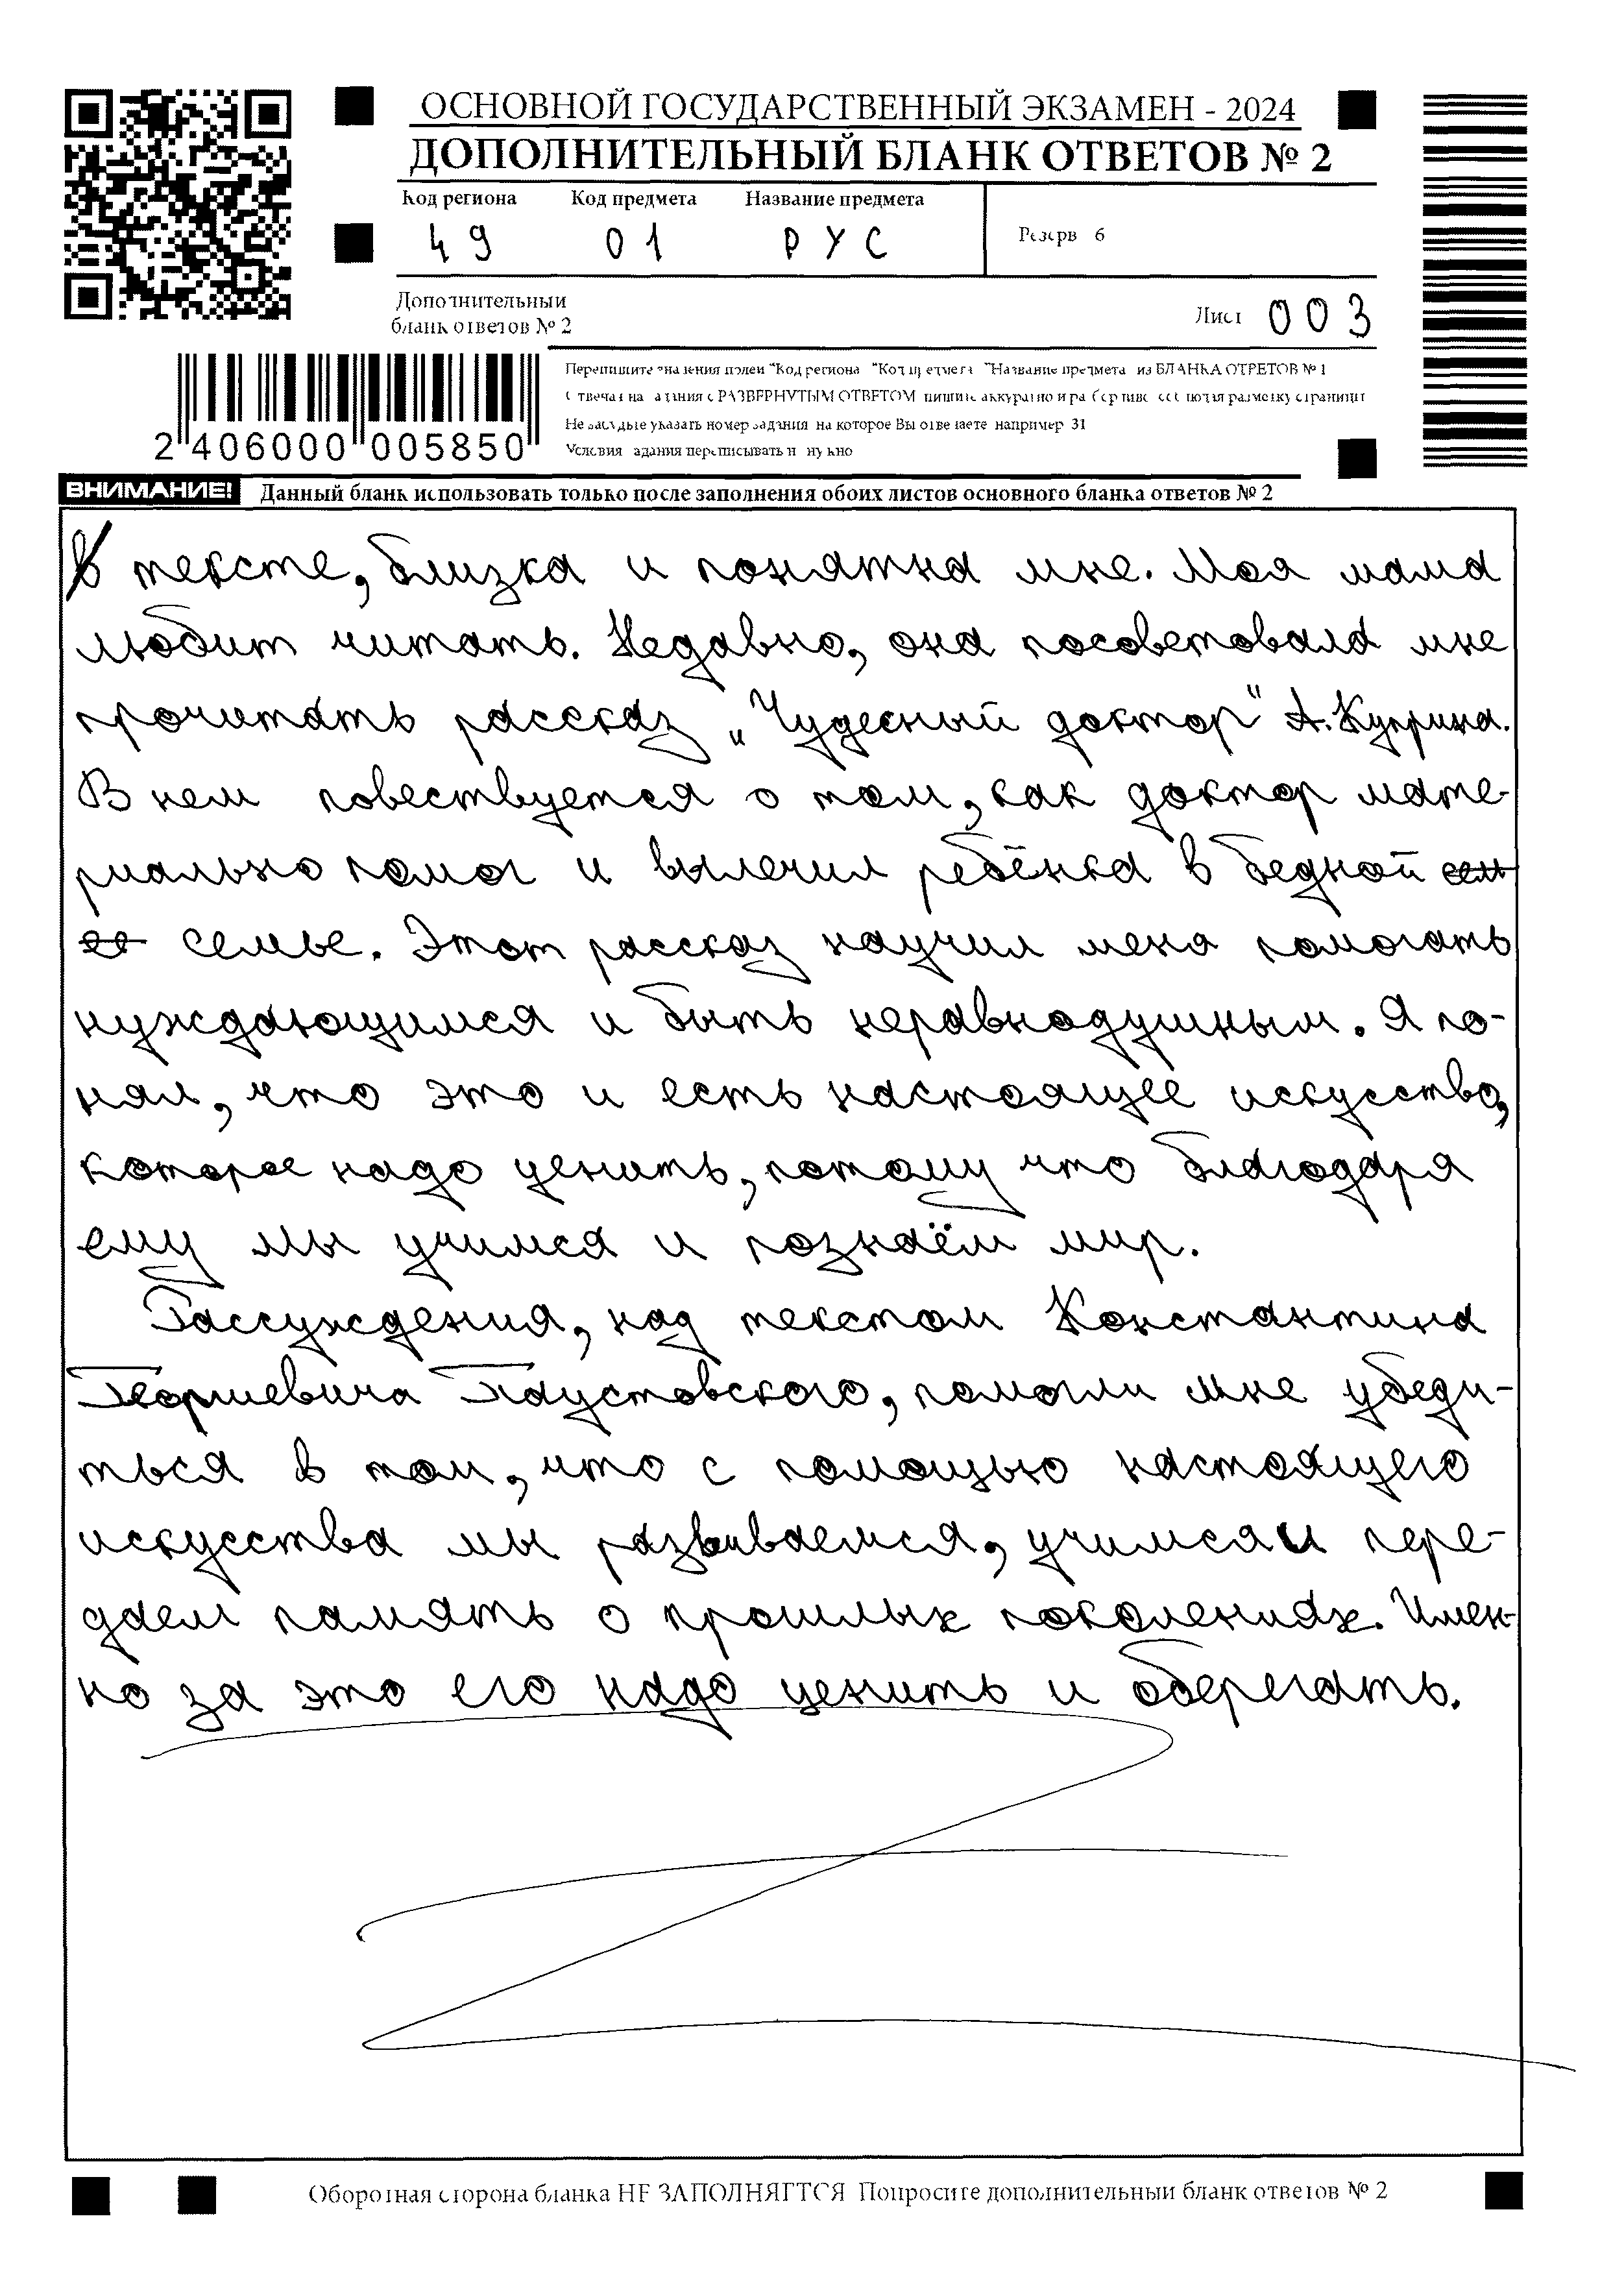 ОСНОВНОЙ ГОСУДАРСТВЕННЫЙ ЭКЗАМЕН - 2024
ДОПОЛНИТЕЛЬНЫЙ БЛАНК ОТВЕТОВ № 2
Код региона Код предмета Название предмета
49 01 РУС
Резерв 6
Дополнительный
бланк ответов № 2
Лист 003
Перепишите значения полей "Код региона", "Код предмета", "Название предмета" из БЛАНКА ОТВЕТОВ № 1
Отвечая на задания с РАЗВЕРНУТЫМ ОТВЕТОМ, пишите аккуратно и разборчиво, соблюдая разметку страницы
Не забудьте указать номер задания, на которое Вы отвечаете, например, 31
Условия задания переписывать не нужно
2 406000 005850
ВНИМАНИЕ! Данный бланк использовать только после заполнения обоих листов основного бланка ответов № 2
В тексте, близка и понятна мне. Моя мама
любит читать. Недавно, она посоветовала мне
прочитать рассказ „Чудесный доктор" А. Куприна.
В нем повествуется о том, как доктор мате-
риально помог и вылечил ребёнка в бедной
семье. Этот рассказ научил меня помогать
нуждающимся и быть неравнодушным. Я по-
нял, что это и есть настоящее искусство,
которое надо ценить, потому что благодаря
ему мы учимся и познаём мир.
Рассуждения, над текстом Константина
Георгиевича Паустовского, помогли мне убеди-
ться в том, что с помощью настоящего
искусства мы развиваемся, учимся и пере-
даем память о прошлых поколениях. Имен-
но за это его надо ценить и оберегать.
Оборотная сторона бланка НЕ ЗАПОЛНЯЕТСЯ. Попросите дополнительный бланк ответов № 2